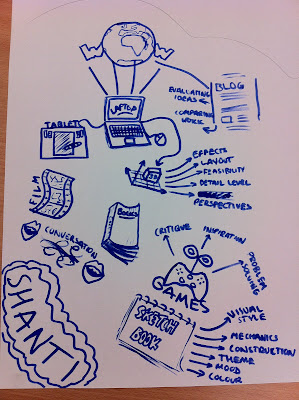 W W
BLOG
EVALUATING
IDEAS
COMPARING
WORK
LAPTOP
TABLET
EFFECTS
LAYOUT
FEASIBILITY
DETAIL LEVEL
PERSPECTIVES
FILM
BOOKS
CONVERSATION
CRITIQUE
INSPIRATION
PROBLEM
SOLVING
GAMES
SHANTI
SKETCH
BOOK
VISUAL
STYLE
MECHANICS
CONSTRUCTION
THEME
MOOD
COLOUR